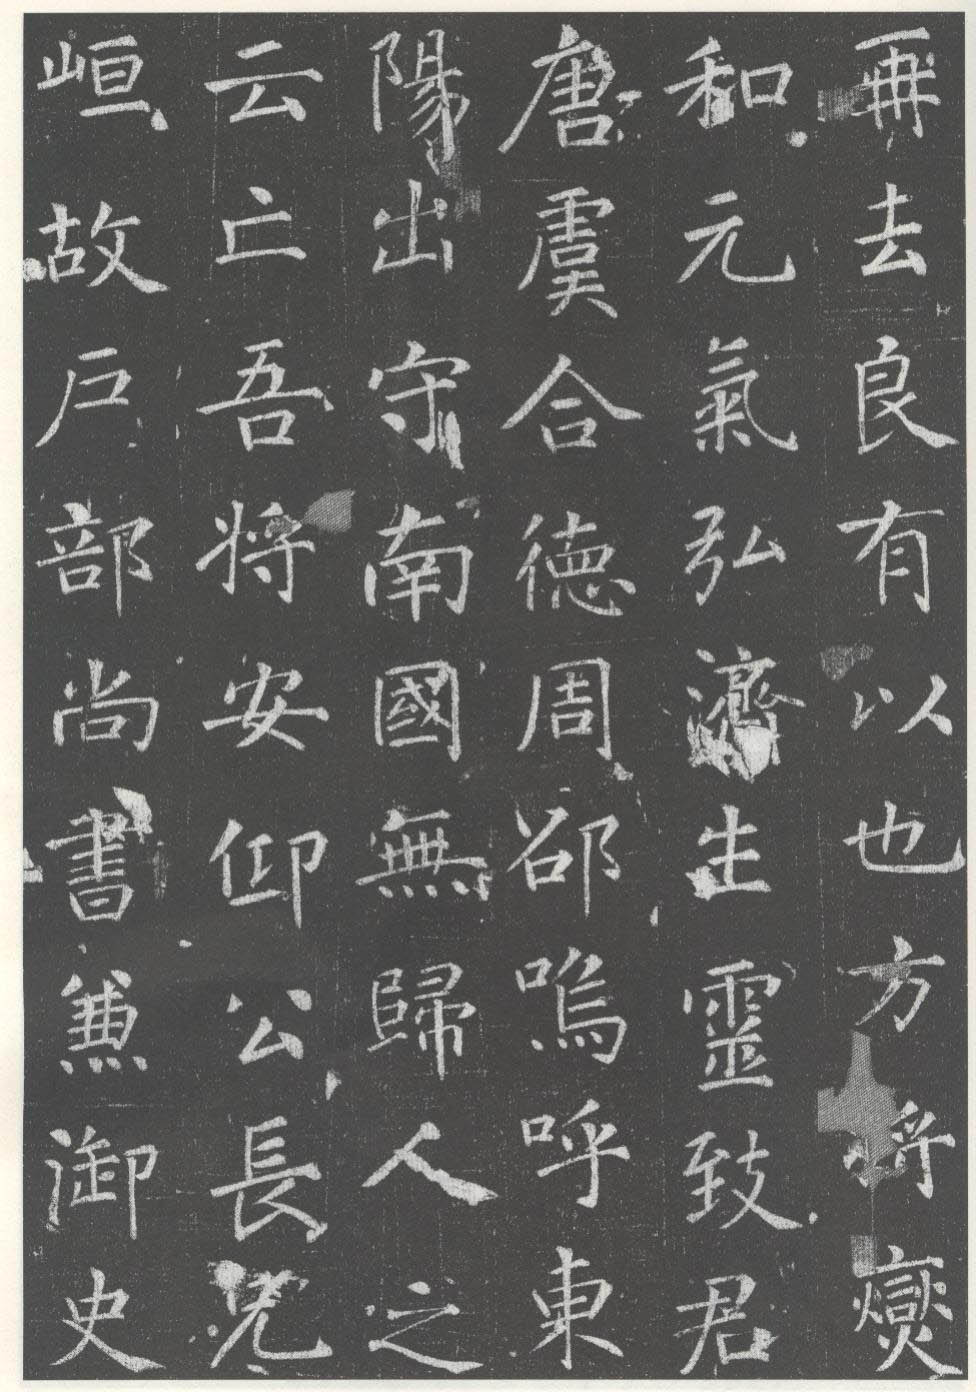 再去良有以也方将燮
和元氣弘濟生靈致君
唐虞合德周邵嗚呼東
陽出守南國無歸人之
云亡吾将安仰公長兄
峘故户部尚書兼御史